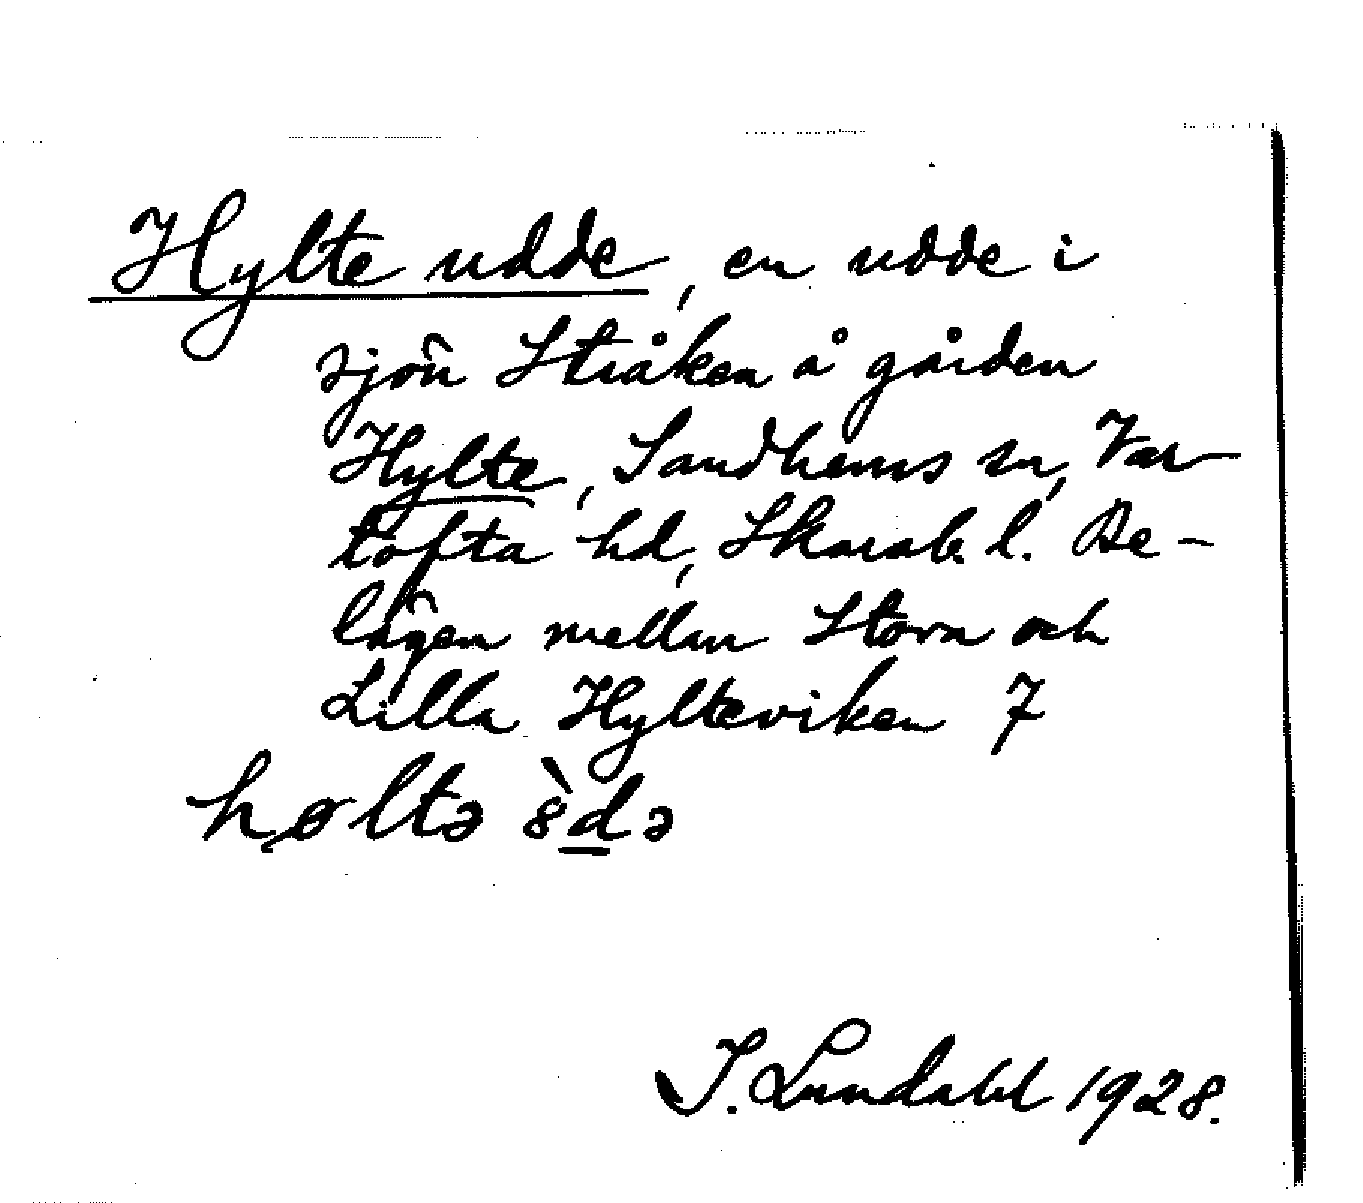 Hylte udde, en udde i
sjön Stråken å gården
Hylte, Sandhems sn, Var-
tofta hd, Skarab. l. Be-
lägen mellan Stora och
Lilla Hylteviken 7
høltə 8̀d̲ə
I. Lundahl 1928.